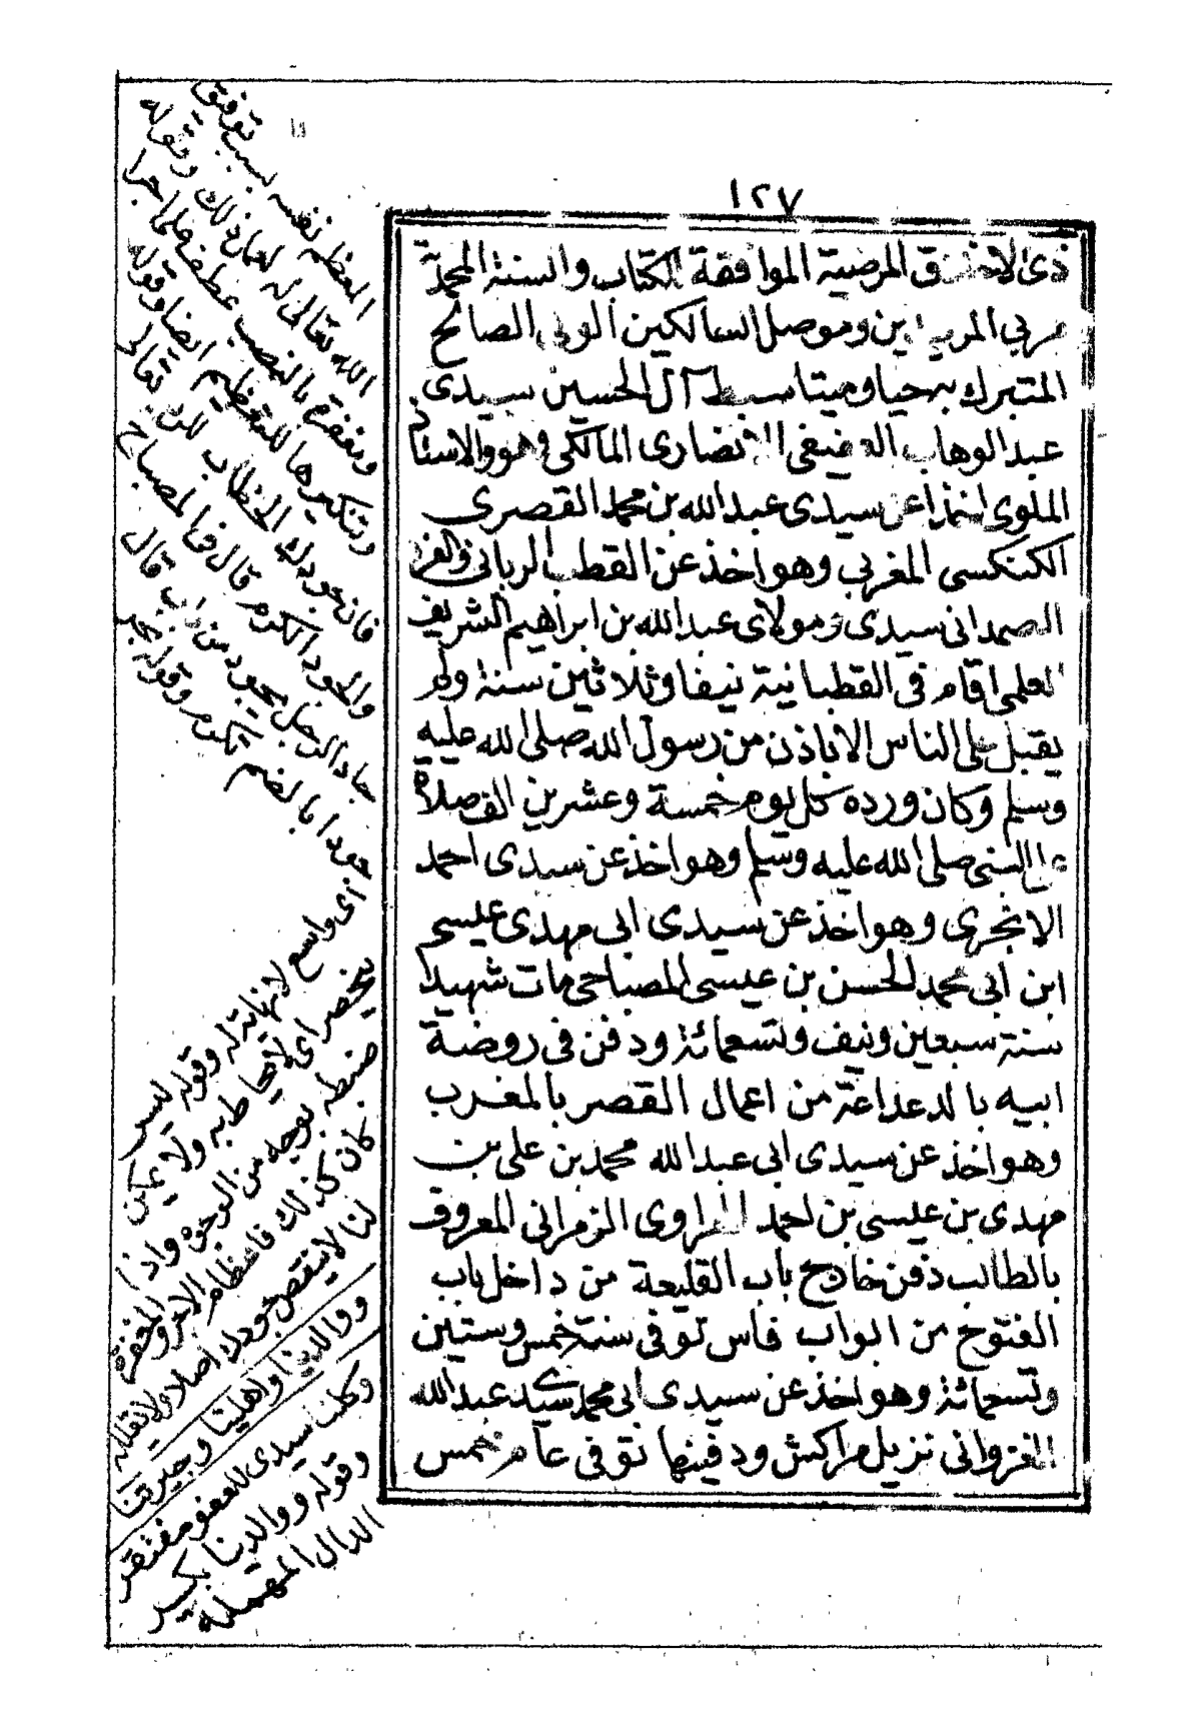 ١٢٧
ذى الاخلاق المرضية الموافقة للكتاب والسنة المحمدية
مربي المريدين وموصل السالكين الولي الصالح
المتبرك به حيا وميتا سبط آل الحسين سيدى
عبد الوهاب العفيفى الانصارى المالكى وهو والاستاذ
الملوى اخذا عن سيدى عبد الله بن محمد القصرى
الكنكسى المغربي وهو اخذ عن القطب الربانى والفرد
الصمدانى سيدى ومولاى عبد الله بن ابراهيم الشريف
العلمى اقام فى القطبانية نيفا وثلاثين سنة ولم
يقبل على الناس الا باذن من رسول الله صلى الله عليه
وسلم وكان ورده كل يوم خمسة وعشرين الف صلاة
على النبى صلى الله عليه وسلم وهو اخذ عن سيدى احمد
الانجرى وهو اخذ عن سيدى ابى مهدى عيسى
ابن ابى محمد الحسن بن عيسى المصباحى مات شهيدا
سنة سبعين ونيف وتسعمائة ودفن فى روضة
ابيه بالدعداعة من اعمال القصر بالمغرب
وهو اخذ عن سيدى ابى عبد الله محمد بن على بن
مهدى بن عيسى بن احمد الهراوى الزمرانى المعروف
بالطالب دفن خارج باب القليعة من داخل باب
الفتوح من ابواب فاس توفى سنة خمس وستين
وتسعمائة وهو اخذ عن سيدى ابى محمد سيدى عبد الله
الغزوانى نزيل مراكش ودفينها توفى عام خمس
المعظم نفسه بسبب توفيق
الله تعالى له لعمل ذلك وقوله
ومغفرة بالنصب عطف على اجرا
وتنكيرها للتعظيم ايضا وقوله
فان جودك الخطاب لله تعالى
والجود الكرم قال فى المصباح
جاد الرجل يجود من باب قال
جودا بالضم تكرم وقوله بحر
اى واسع لا نهاية له وقوله ليس
ينحصر اى لا يحاط به ولا يمكن
ضبطه بوجه من الوجوه واذا
كان كذلك فاعظام الاجر والمغفرة
لنا لا ينقص جودك اصلا ولا يقلله
ووالدينا واهلينا وجيرتنا
وكلنا سيدى للعفو مفتقر
وقوله ووالدينا بكسر
الدال المهملة